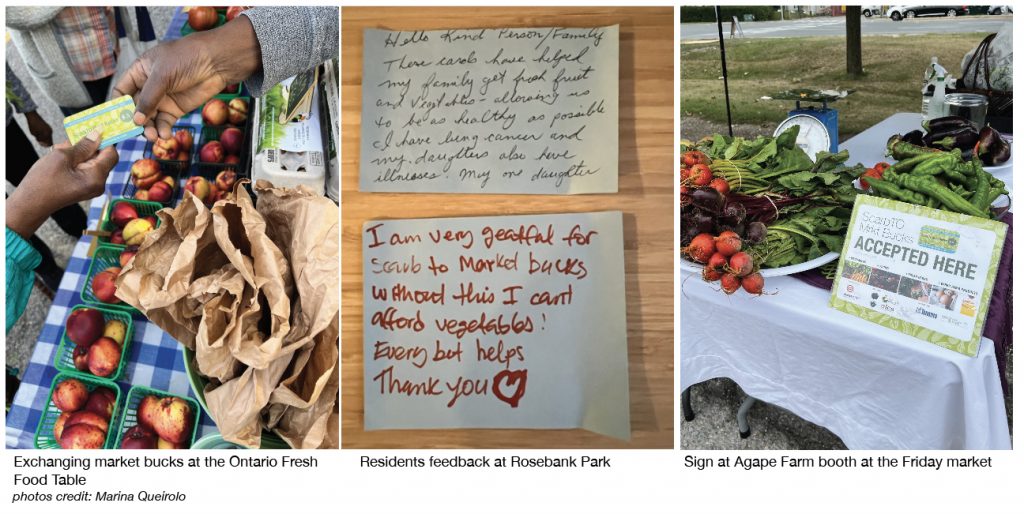 Hello Kind Person/Family
These cards have helped
my family get fresh fruit
and vegitables - allowing us
to be as healthy as possible
I have lung cancer and
my daughters also have
illnesses. May one daughter
I am very geatful for
Scarb to Market bucks
without this I can't
afford vegetables!
Every but helps
Thank you
ScarbTO
Mrkt Bucks
ACCEPTED HERE
Exchanging market bucks at the Ontario Fresh
Food Table
photos credit: Marina Queirolo
Residents feedback at Rosebank Park
Sign at Agape Farm booth at the Friday market